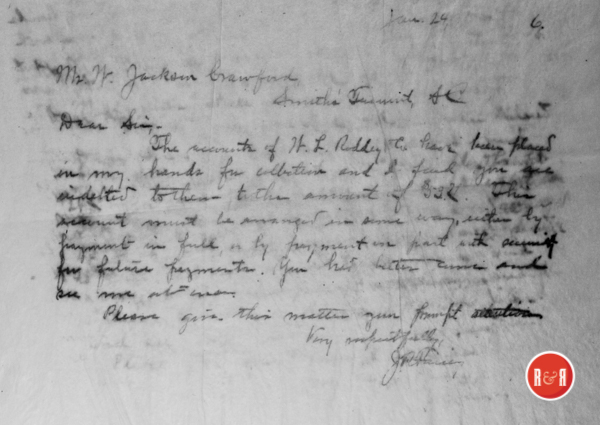 Jan. 24 6.
Mr. W. Jackson Crawford
Smith's Turnout, SC
Dear Sir,-
The accounts of W. L. Roddey Co have been placed
in my hands for collection and I find you are
indebted to them to the amount of
account must be arranged in some way, either by
payment in full, or by payment in part with security
for future payments. You had better come and
see me at once.
Please give this matter your prompt attention
Very respectfully,
R&R